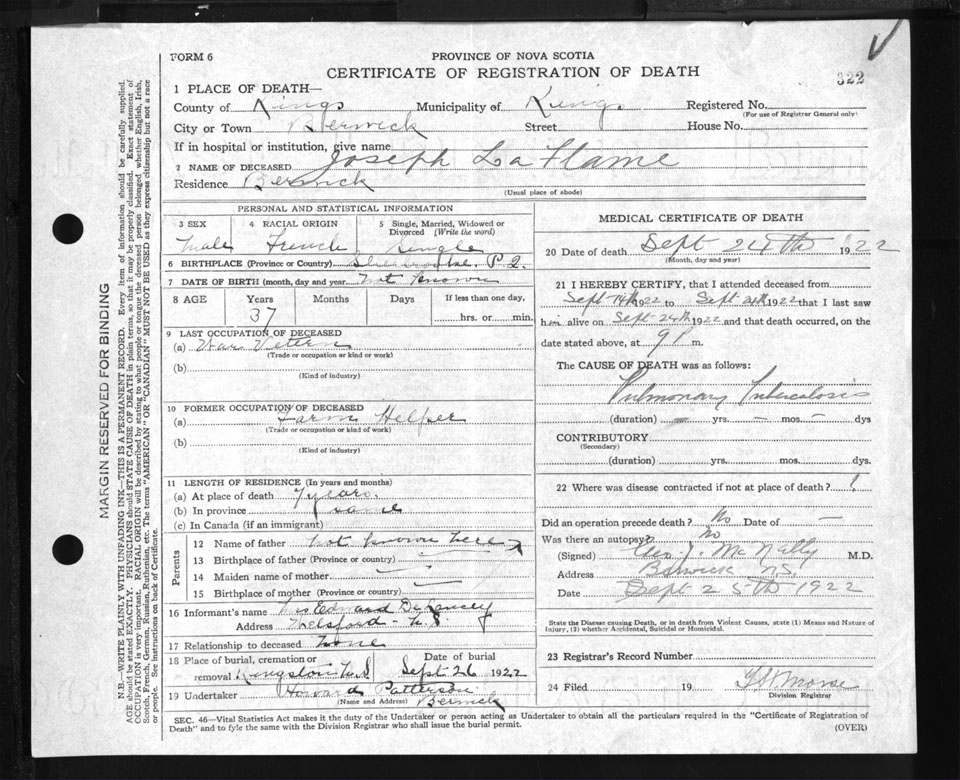 FORM 6
PROVINCE OF NOVA SCOTIA
CERTIFICATE OF REGISTRATION OF DEATH
322
1 PLACE OF DEATH—
County of Kings Municipality of Kings Registered No.
(For use of Registrar General only)
City or Town Berwick Street House No.
If in hospital or institution, give name
2 NAME OF DECEASED Joseph La Flame
Residence Berwick
(Usual place of abode)
PERSONAL AND STATISTICAL INFORMATION
3 SEX 4 RACIAL ORIGIN 5 Single, Married, Widowed or Divorced (Write the word)
Male French Single
6 BIRTHPLACE (Province or Country) Sherbrooke P.Q.
7 DATE OF BIRTH (month, day and year) Not Known
8 AGE Years Months Days If less than one day,
37 hrs. or min.
9 LAST OCCUPATION OF DECEASED
(a) War Vetern
(Trade or occupation or kind of work)
(b)
(Kind of industry)
10 FORMER OCCUPATION OF DECEASED
(a) Farm Helper
(Trade or occupation or kind of work)
(b)
(Kind of industry)
11 LENGTH OF RESIDENCE (In years and months)
(a) At place of death 7 years.
(b) In province same
(c) In Canada (if an immigrant)
Parents
12 Name of father Not known here
13 Birthplace of father (Province or country)
14 Maiden name of mother
15 Birthplace of mother (Province or country)
16 Informant's name Edward
Address N.S.
17 Relationship to deceased None
18 Place of burial, cremation or removal Kingston N.S. Date of burial Sept 26 1922
19 Undertaker Howard Patterson
(Name and Address) Berwick
MEDICAL CERTIFICATE OF DEATH
20 Date of death Sept 24th 1922
(Month, day and year)
21 I HEREBY CERTIFY, that I attended deceased from
Sept 14th 1922 to Sept 24th 1922 that I last saw
him alive on Sept 24th 1922 and that death occurred, on
date stated above, at 9 P m.
The CAUSE OF DEATH was as follows:
Pulmonary Tuberculosis
(duration) — yrs. — mos. — dys
CONTRIBUTORY
(Secondary)
(duration) yrs. mos. dys.
22 Where was disease contracted if not at place of death?
Did an operation precede death? No Date of —
Was there an autopsy? No
(Signed) Geo J. McNally M.D.
Address Berwick N.S.
Date Sept 25th 1922
State the Disease causing Death, or in death from Violent Causes, state (1) Means and Nature of
Injury, (2) whether Accidental, Suicidal or Homicidal.
23 Registrar's Record Number
24 Filed 19 Morse
Division Registrar
SEC. 46—Vital Statistics Act makes it the duty of the Undertaker or person acting as Undertaker to obtain all the particulars required in the "Certificate of Registration of
Death" and to fyle the same with the Division Registrar who shall issue the burial permit. (OVER)
MARGIN RESERVED FOR BINDING
N.B.—WRITE PLAINLY WITH UNFADING INK—THIS IS A PERMANENT RECORD. Every item of information should be carefully supplied.
AGE should be stated EXACTLY. PHYSICIANS should STATE CAUSE OF DEATH in plain terms, so that it may be properly classified. Exact statement of
OCCUPATION is very important. RACIAL ORIGIN will be described by stating to what people or tongue the deceased person belonged whether English, Irish,
Scotch, French, German, Russian, Ruthenian, etc. The terms "AMERICAN" OR "CANADIAN" MUST NOT BE USED as they express citizenship but not a race
or people. See instructions on back of Certificate.